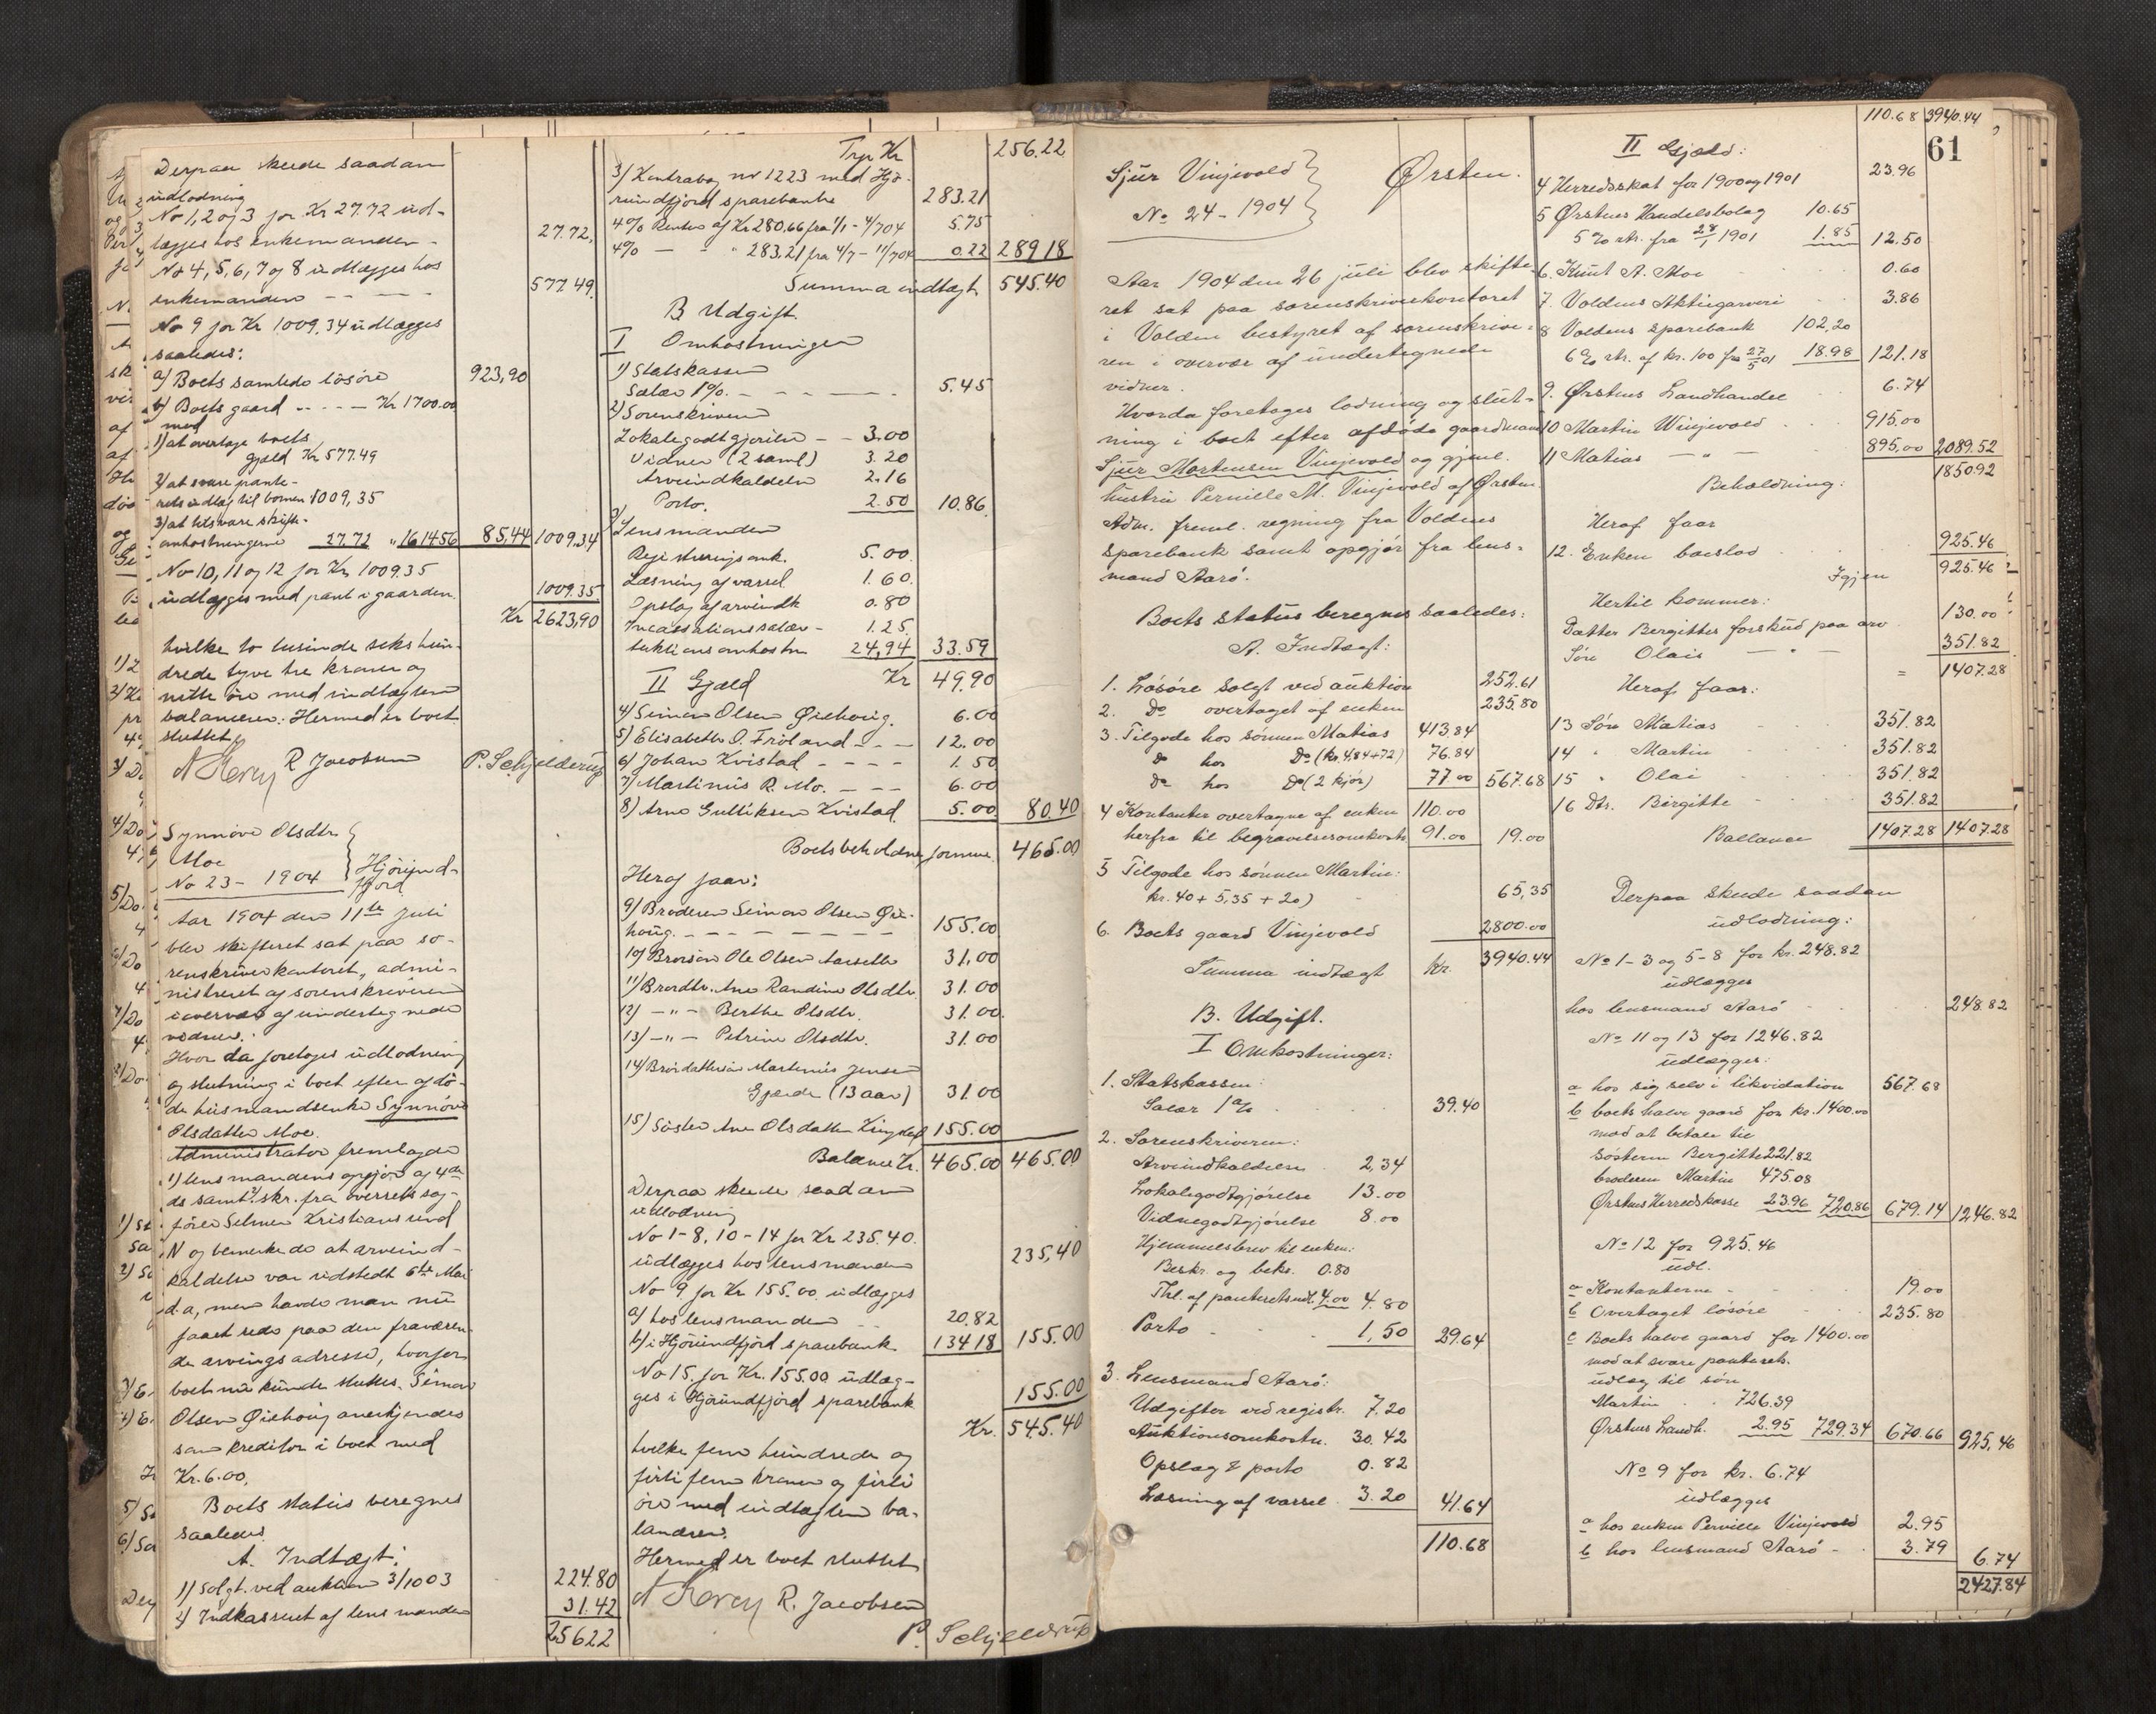 Derpaa skede saadan
udlodning
No 1, 2 og 3 for Kr 27.72 ud-
lægges hos enkemanden - 27.72,
No 4, 5, 6, 7 og 8 udlægges hos
enkemanden - - - - 577.49
No 9 for Kr 1009.34 udlægges
saaledes:
a) Boets samlede lösöre 923,90
b) Boets gaard - - - - Kr 1700.00
mod
1) at overtage boets
gjæld Kr 577.49
2) at svare pante-
rets udlæg til börnene 1009,35
3) at tilsvare skifte-
omkostningerne 27.72 " 1614.56 85,44 1009.34
No 10, 11 og 12 for Kr 1009.35
udlægges med pant i gaarden. 1009.35
Kr 2623,90
hvilke to tusinde seks hun-
drede tyve tre kroner og
nitti öre med indtægten
balancerer. Hermed er boet
sluttet.
R Jacobsen P. Schjelderup
Synnöve Olsdtr
Moe
No 23 - 1904 } Hjörund-
fjord
Aar 1904 den 11te Juli
blev skifteret sat paa so-
renskriverkontoret, admi-
nistreret af sorenskriveren
i overvær af undertegnede
vidner.
Hvor da foretoges udlodning
og slutning i boet efter afdö-
de husmandsenke Synnöve
Olsdatter Moe.
Administrator fremlagde
1) lensmandens opgjör og 4de
ds samt 2) skr. fra overretssag-
förer Selmer Kristiansund
N og bemerkede at arveind-
kaldelse var udstedt 6te Mai
d.a, men havde man nu
faaet rede paa den fraværen-
de arvings adresse, hvorfor
boet nu kunde sluttes. Simon
Olsen Öiehoug anerkjendes
som kreditor i boet med
Kr. 6.00.
Boets status beregnes
saaledes.
A. Indtægt:
1) Solgt ved auktion 3/10 03 224.80
2) Indkasseret af lensmanden 31.42
256 22
Trp Kr 256.22
3) Kontrabog nr 1223 med Hjö-
rundfjord sparebank 283.21
4% Renter af Kr 280,66 fra 1/1 - 4/7 04 5.75
4% - - " 283.21 fra 4/7 - 11/7 04 0.22 289 18
Summa indtægt 545.40
B Udgift.
I Omkostninger
1) Statskassen
Salær 1%. - - - - 5.45
2) Sorenskriveren
Lokalegodtgjörelse - - 3.00
Vidner (2 saml) 3.20
Arveindkaldelse 2.16
Porto. 2.50 10.86.
3) Lensmanden
Registreringsomk. 5.00.
Læsning af varsel 1.60.
Opslag af arveindk 0.80
Incassationssalær - 1.25.
Auktionsomkostn 24,94 33.59
II Gjæld Kr 49.90
4) Simon Olsen Öiehoug. 6.00
5) Elisabeth O. Fröland - - - 12.00
6) Johan Kvistad - - - - 1.50
7) Martinus R. Mo. - - - 6.00
8) Arne Gulliksen Kvistad. 5.00. 80.40
Boets beholdne formue 465.00
Heraf faar:
9) Broderen Simon Olsen Öie-
houg. - - - - - - - 155.00
10) Brorsön Ole Olsen Aarseth 31,00
11) Brordtr. Ane Randine Olsdtr. 31.00
12) - " - Berthe Olsdtr. 31.00.
13) - " - Petrine Olsdtr. 31.00
14) Brordattersön Martinus Jensen
Gjerde (13 aar) 31.00
15) Söster Ane Olsdatter 155.00
Balance Kr. 465.00 465.00
Derpaa skede saadan
udlodning
No 1-8, 10-14 for Kr 235.40.
udlægges hos lensmanden 235,40
No 9 for Kr 155.00 udlægges
a) hos lensmanden - - 20,82
b) i Hjörundfjord sparebank 134 18 155.00
No 15 for Kr. 155.00 udlæg-
ges i Hjörundfjord sparebank 155.00
Kr. 545.40
hvilke fem hundrede og
firti fem kroner og firti
öre med indtægten ba-
lancerer.
Hermed er boet sluttet
R. Jacobsen
P. Schjelderup
61
Sjur Vinjevold } Ørsten.
No 24 - 1904
Aar 1904 den 26 juli blev skifte-
ret sat paa sorenskriverkontoret
i Volden bestyret af sorenskrive-
ren i overvær af undertegnede
vidner.
Hvorda foretoges lodning og slut-
ning i boet efter afdöde gaardmand
Sjur Mortensen Vinjevold og gjenl.
hustru Pernille M. Vinjevold af Ørsten
Adm. freml. regning fra Voldens
sparebank samt opgjör fra lens-
mand Aarö.
Boets status beregnes saaledes:
A. Indtægt:
1. Lösöre solgt ved auktion 252.61
2. Do overtaget af enken 235.80
3. Tilgode hos sönnen Matias 413.84
do hos Do (kr. 4,84+72) 76.84
do hos Do (2 kjör) 77.00 567.68
4 Kontanter overtagne af enken 110.00
herfra til begravelsesomkostn 91.00 19.00
5 Tilgode hos sönnen Martin:
kr. 40 + 5,35 + 20) - 65,35
6. Boets gaard Vinjevold 2800.00
Summa indtægt kr. 3940.44
B. Udgift.
I Omkostninger:
1. Statskassen:
Salær 1% . . . . 39.40
2. Sorenskriveren:
Arveindkaldelsen . 2,34
Lokalegodtgjörelse 13.00
Vidnegodtgjörelse 8.00
Hjemmelsbrev til enken:
Beskr. og beks. 0.80
Thl. af panteretsudl. 4.00 4.80
Porto . . . 1,50 29.64
3. Lensmand Aarö:
Udgifter ved registr. 7.20
Auktionsomkostn. 30.42
Opslag & porto 0.82
Læsning af varsel . 3.20 41.64
110.68
110.68 3940.44
II Gjæld:
4 Herredsskat for 1900 og 1901 23.96
5 Ørstens Handelsbolag 10.65
5% rtr. fra 28/1 1901 1.85 12.50
6. Knut A. Moe . . . 0.60
7. Voldens Aktiegarveri . . 3.86
8 Voldens sparebank 102,20
6% rtr. af kr. 100 fra 27/5 01 18.98 121.18
9. Ørstens Landhandel . . 6.74
10 Martin Vinjevold . . . 915.00
11 Matias - " - 895,00 2089.52
Beholdning: 185092
Heraf faar
12. Enken boeslod . . . 925.46
Igjen 925.46
Hertil kommer:
Datter Bergittes forskud paa arv 130.00
Sön Olais - " - 351.82
= 1407.28
Heraf faar:
13 Sön Matias . . . 351.82
14 " Martin . . . 351.82
15 " Olai . . . 351.82
16 Dtr. Birgitte - . . 351.82
Ballance 1407.28 1407.28
Derpaa skede saadan
udlodning:
No 1-3 og 5-8 for kr. 248.82
udlægges
hos lensmand Aarö . . . 248.82
No 11 og 13 for 1246.82
udlægges:
a hos sig selv i likvidation 567.68
b boets halve gaard for kr. 1400.00
mod at betale til
Sösteren Bergitte 221.82
broderen Martin 475.08
Ørstens Herredskasse 23.96 720.86 679.14 1246.82
No 12 for 925.46
udl.
a Kontanterne - . . . 19.00
b Overtaget lösöre . . 235.80
c Boets halve gaard for 1400.00
mod at svare panterets.
udlæg til sön
Martin . . 726.39
Ørstens Landh. 2.95 729.34 670.66 925,46
No 9 for kr. 6.74
udlægges
a hos enken Pernille Vinjevold 2.95
b hos lensmand Aarö - . 3.79 6.74
2427.84